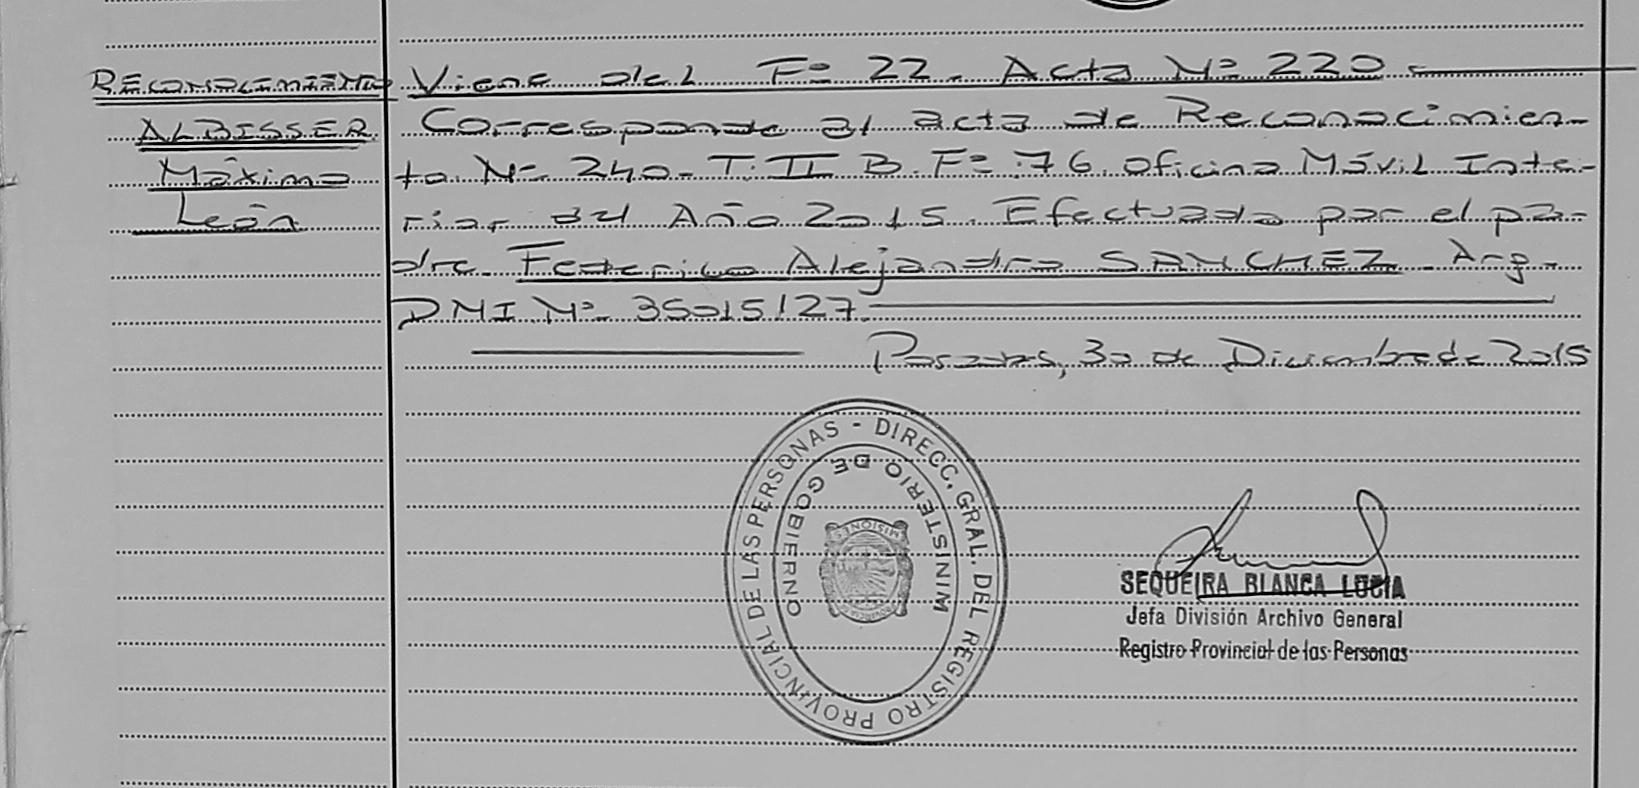 RECONOCIMIENTO
ALBISSER
Máximo
León
Viene del Fº 22. Acta Nº 220.
Corresponde al acta de Reconocimien-
to Nº 240 - T: II B. Fº: 76 Oficina Móvil Inte-
rior del Año 2015. Efectuado por el pa-
dre Federico Alejandro SANCHEZ - Arg -
DMI Nº 35015127.
Posadas, 30 de Diciembre de 2015
DIRECC. GRAL. DEL REGISTRO PROVINCIAL DE LAS PERSONAS -
MINISTERIO DE GOBIERNO
MISIONES
SEQUEIRA BLANCA LUCIA
Jefa División Archivo General
Registro Provincial de las Personas